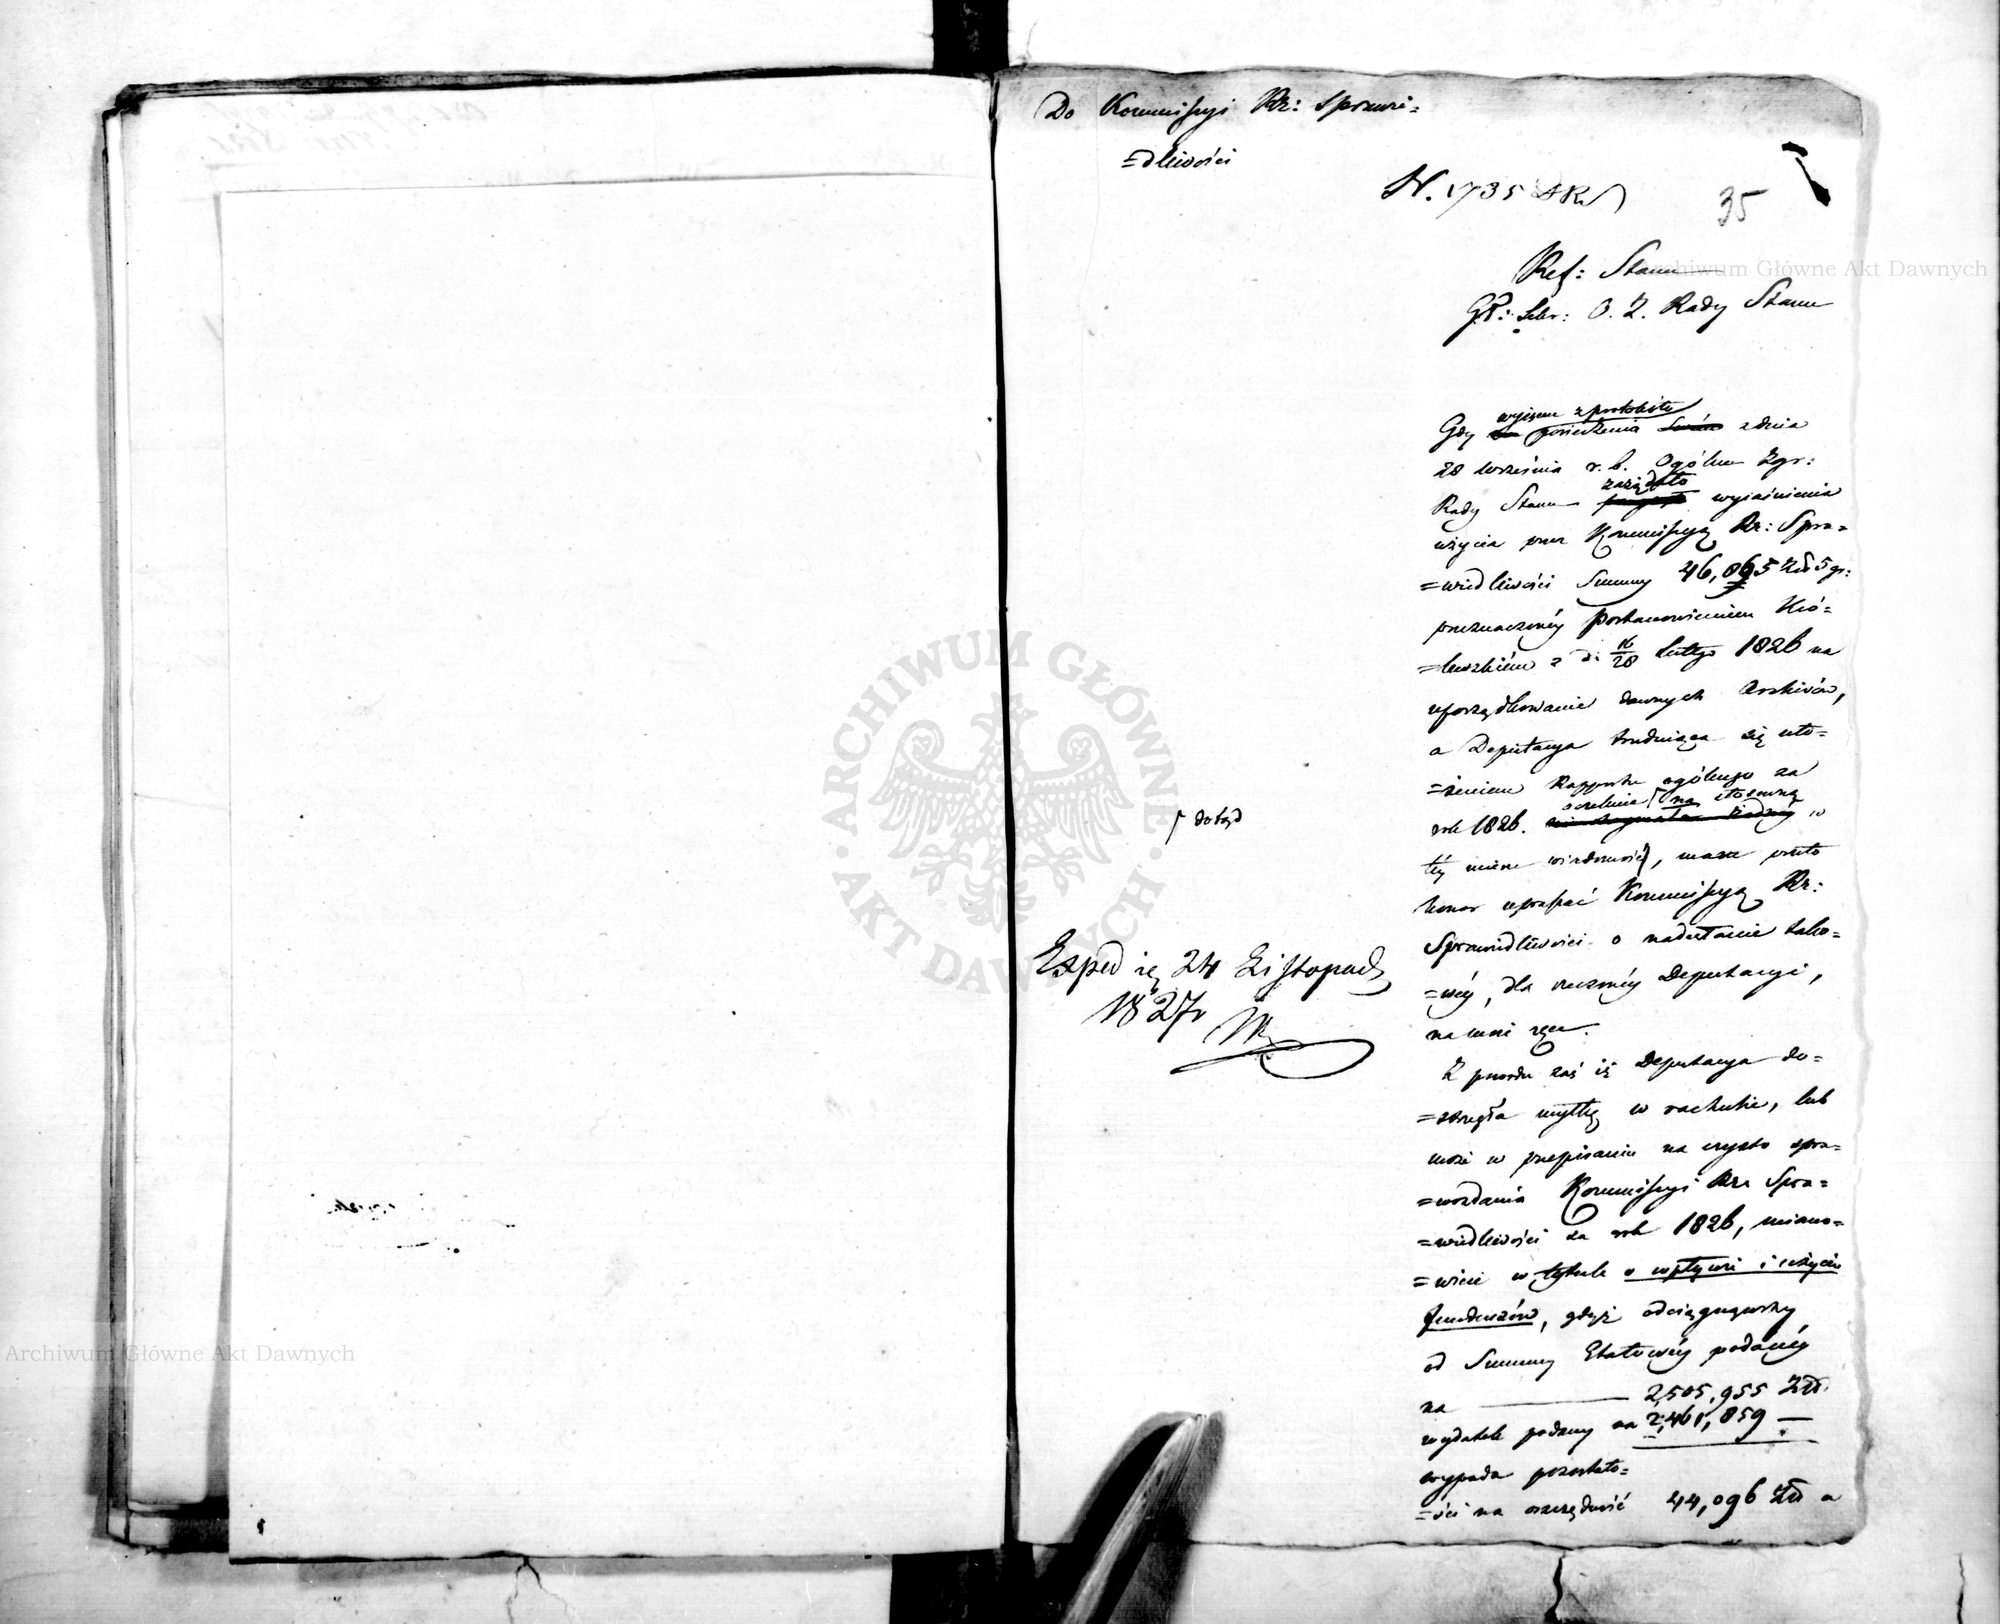 Do Kommissyi Rz: Sprawie=
=dliwości
N. 1735
35
Ref: Stanu
Gł: Sekr: O. Z. Rady Stanu
wyjęciem z protokółu
Gdy posiedzenia z dnia
28 września r. b. Ogólne Zgr:
zażądało
Rady Stanu wyiaśnienia
użycia przez Kommissyą Rz: Spra=
=wiedliwości Summy 46,065 Złł 5 gr:
przeznaczonéy Postanowieniem Kró=
=lewskiém z d: 16/28 lutego 1826 na
uporządkowanie dawnych Archivów,
a Deputacya trudniąca się uło=
=żeniem Rapportu ogólnego za
oczekuie na stosowną
rok 1826. w
téy mierze wiadomość, mam przeto
honor upraszać Kommissyą Rz:
Sprawiedliwości o nadesłanie tako=
=wéy, dla rzeczonéy Deputacyi,
na moie ręce.
Z powodu zaś iż Deputacya do=
=strzegła myłkę w rachubie, lub
może w przepisaniu na czysto spra=
=wozdania Kommissyi Rz: Spra=
=wiedliwości za rok 1826, miano=
=wicie w tytule o wpływie i użyciu
funduszów, gdyż odciągnąwszy
od Summy Etatowéy podanéy
na ——— 2,505,955 Złł.
wydatek podany na 2,461,859 —
wypada pozostało=
=ści na oszczędność 44,096 Złł a
dotąd
Exped się 24 Listopada
1827 r
ARCHIWUM GŁÓWNE AKT DAWNYCH
Archiwum Główne Akt Dawnych
Archiwum Główne Akt Dawnych